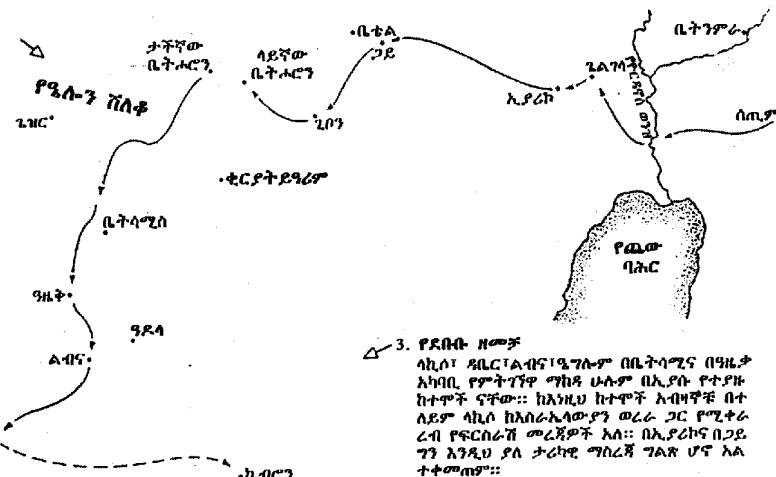 ቤተል
ጋይ
ቤትንምራ
ታችኛው
ቤትሖሮን
ላይኛው
ቤትሖሮን
የዔሎን ሸለቆ
ጌዝር
ኢያሪኮ
ጌልገላ
ዮርዳኖስ ወንዝ
ሰጢም
ጊቦን
ቂርያትይዓሪም
ቤትሳሚስ
የጨው
ባሕር
ዓዜቅ
ዓዶላ
ልብና
ኬብሮን
3. የደቡቡ ዘመቻ
ላኪሶ፣ ዳቤር፣ልብና፣ዔግሎም በቤትሳሚና በዓዜቃ
አካባቢ የምትገኘዋ ማከዳ ሁሉም በኢያሱ የተያዙ
ከተሞች ናቸው። ከእነዚህ ከተሞች አብዛኞቹ በተ
ለይም ላኪሶ ከእስራኤላውያን ወረራ ጋር የሚቀራ
ረብ የፍርስራሽ መረጃዎች አለ። በኢያሪኮና በጋይ
ግን እንዲህ ያለ ታሪካዊ ማስረጃ ግልጽ ሆኖ አል
ተቀመጠም።